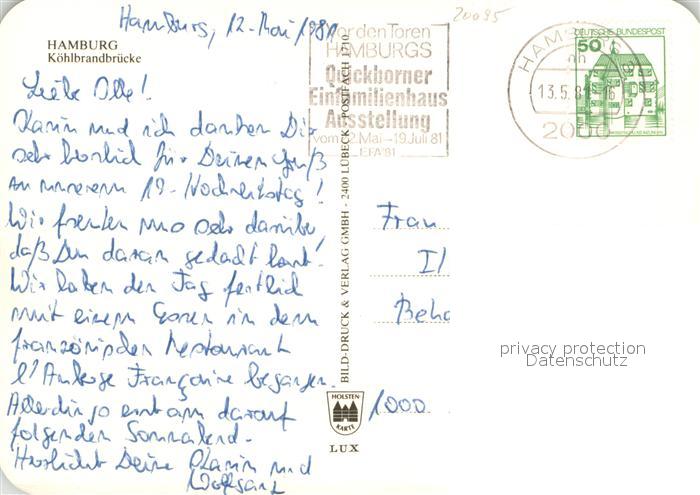 Hamburg, 12. Mai 1981
20095
HAMBURG
Köhlbrandbrücke
Vor den Toren
HAMBURGS
Quickborner
Einfamilienhaus
Ausstellung
vom 2. Mai - 19. Juli 81
EFA '81
DEUTSCHE BUNDESPOST
50
HAMBURG
13.5.81-16
2000
Liebe Olle!
Karin und ich danken Dir
sehr herzlich für Deinen Gruß
zu unserem 19. Hochzeitstag!
Wir freuten uns sehr darüber,
daß Du daran gedacht hast!
Wir haben den Tag festlich
mit einem Essen in dem
französischen Restaurant
l'Auberge Française begangen.
Allerdings erst am darauf
folgenden Sonnabend.
Herzlichst Deine Karin und
Wolfgang
BILD-DRUCK & VERLAG GMBH - 2400 LÜBECK - POSTFACH 1710
Frau
Beha
1000
HOLSTEN-
KARTE
LUX
privacy protection
Datenschutz